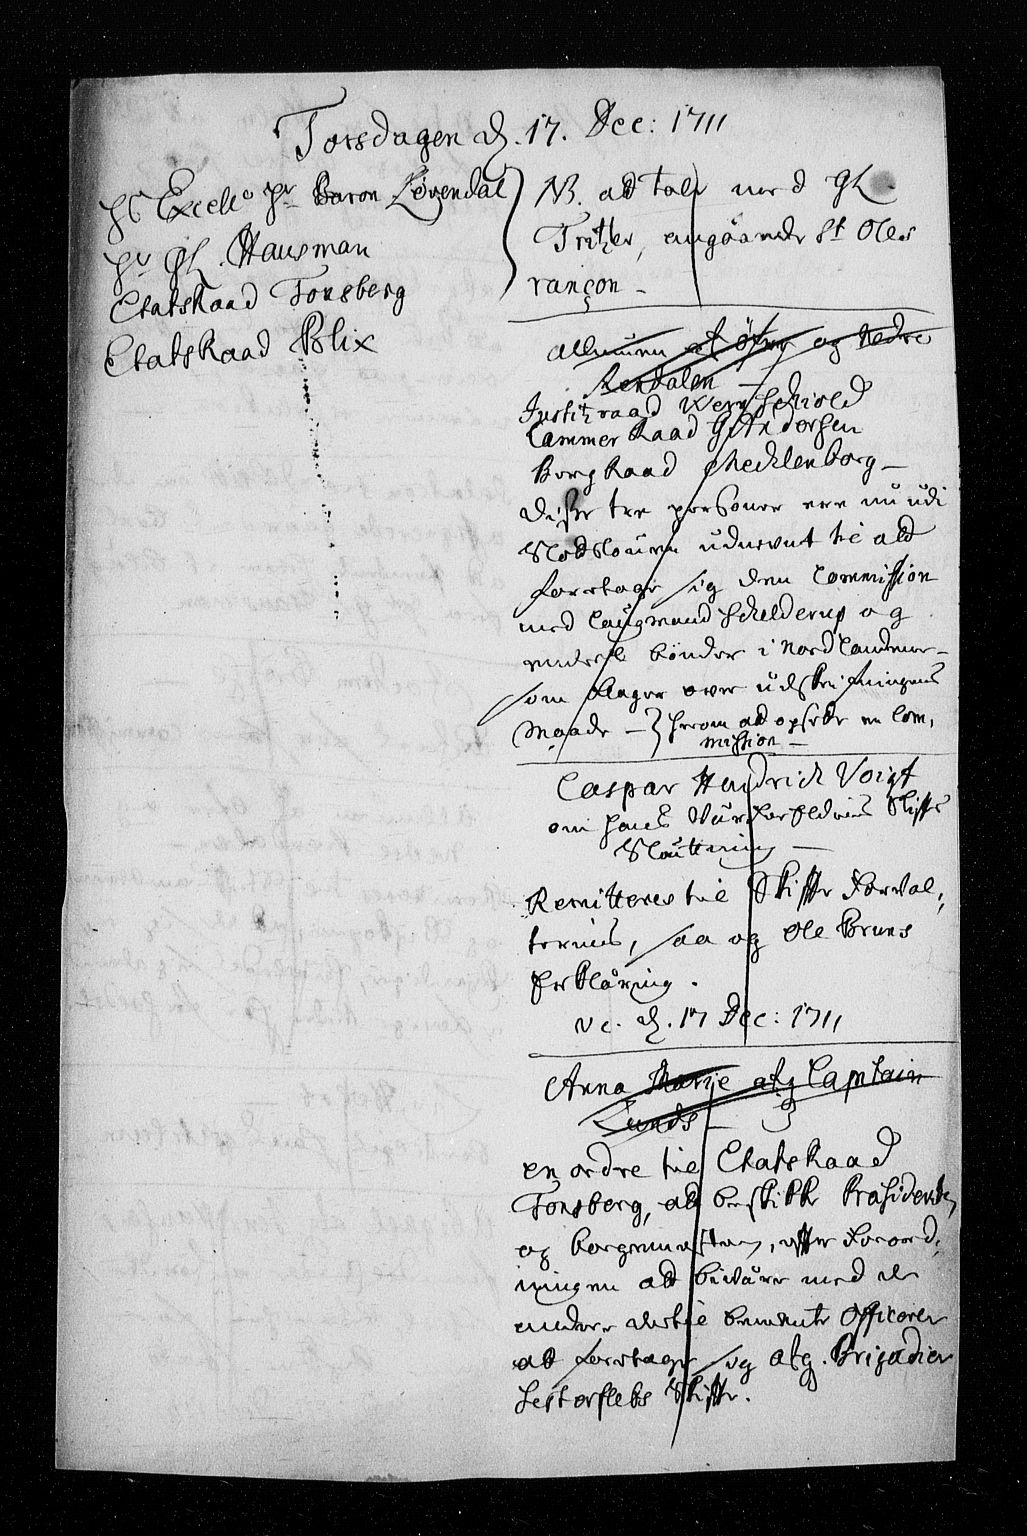 Torsdagen d. 17. Dec: 1711
hs Excell. hr Baron Løvendal
hr GL. Hausman
Etatsraad Tonsberg
Etatsraad Blix
NB. at tale med GL
Tritzler, angaaende St Oles
rançon -
Allmuen af Øfre og Nedre
Rendalen -
Justitzraad Werenschiold
Cammer Raad G Andersen
Borg Raad Mecklenborg -
disse tre personer ere nu udi
Slodsloven udnevnt til att
foretage sig den Commission
med Laugmand Schelderup og
endeel bönder i Nordlandene -
som klager over udskrifningens
Maade - } herom at opsette en Com,
mission -
Caspar Hendrich Voigt
om hans Svärforeldres Skiftes
Slüttning -
Remitteres til Skifte Forval,
terne, saa og Ole Bruns
Erklæring.
vc. d. 17 Dec: 1711
Anna Marie afg Captain
Lunds -
en ordre til Etatsraad
Tonsberg, at beskikke Præsidenten
og borgemesteren, efter Forord,
ningen at bivære med de
andre dertil benevnte Officerer
at foretage sig afg. Brigadier
Schestorflebs Skifte.